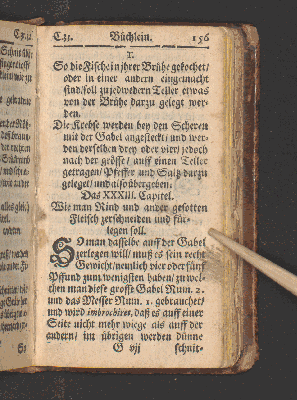 C.33. Büchlein. 156
T.
So die Fische in jhrer Brühe gekochet/
oder in einer andern eingemacht
sind/soll zu jedwedern Teller etwas
von der Brühe darzu gelegt wer-
den.
Die Krebse werden bey den Scheren
mit der Gabel angesteckt/ und wer-
den derselben drey oder vier/ jedoch
nach der grösse/ auff einen Teller
getragen/ Pfeffer und Saltz darzu
geleget/ und also übergeben.
Das XXXIII. Capitel.
Wie man Rind und ander gesotten
Fleisch zerschneiden und für-
legen soll.
SO man dasselbe auff der Gabel
zerlegen will/ muß es sein recht
Gewicht/ neulich vier oder fünff
Pfund zum wenigsten haben/ zu wel-
chen man diese grosse Gabel Num. 2.
und das Messer Num. 1. gebrauchet/
und wird imbrochiret, daß es auff einer
Seite nicht mehr wiege als auff der
andern/ im übrigen werden dünne
G vij schnit-